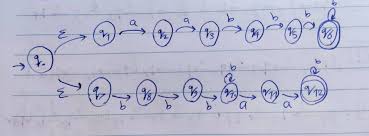 ε q1 a q2 a q3 b q4 b q5 b q6 b
q0
ε q7 b q8 b q9 b q10 b a q11 a q12 b